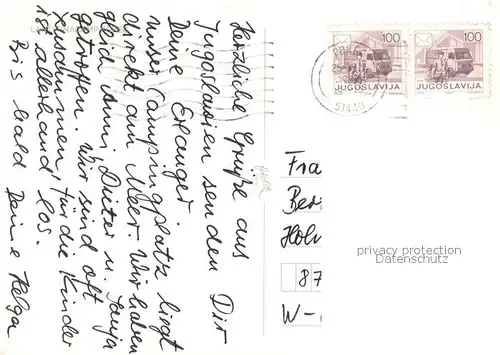 Herzliche Grüße aus
Jugoslawien senden Dir
Deine Erlanger.
Unser Campingplatz liegt
direkt am Meer. Wir haben
gleich Anni, Dieter u. Tanja
getroffen. Wir sind oft
zusammen, für die Kinder
ist allerhand los.
Bis bald Deine Helga
100
JUGOSLAVIJA
100
JUGOSLAVIJA
Fra
Ber
87
W-
privacy protection
Datenschutz